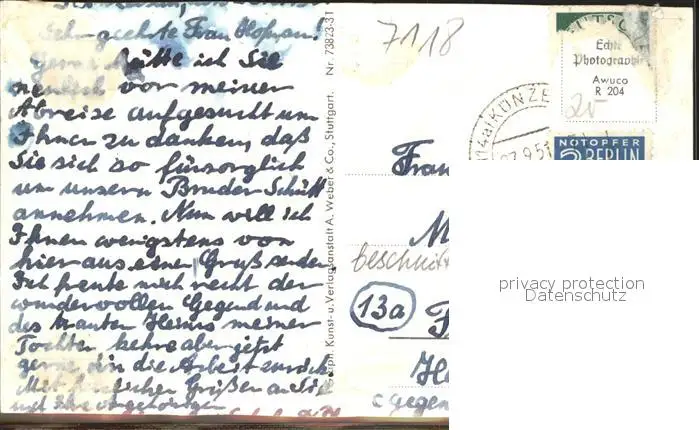 Sehr geehrte Frau Hofman!
Gerne hätte ich Sie
neulich vor meiner
Abreise aufgesucht um
Ihnen zu danken, daß
Sie sich so fürsorglich
um unsern Bruder Schütt
annehmen. Nun will ich
Ihnen wenigstens von
hier aus einen Gruß senden.
Ich freute mich recht der
wundervollen Gegend und
des trauten Heims meiner
Tochter kehre aber jetzt
gerne in die Arbeit zurück
Mit herzlichen Grüßen an Sie
und Ihre Angehörigen
Graph. Kunst- u. Verlagsanstalt A. Weber & Co., Stuttgart. Nr. 73823-31
7118
Echte
Photographie
Awuco
R 204
20
(14a) KÜNZE
NOTOPFER
2 BERLIN
Frau
M
beschnitt
13a
F
Ha
gegen
privacy protection
Datenschutz